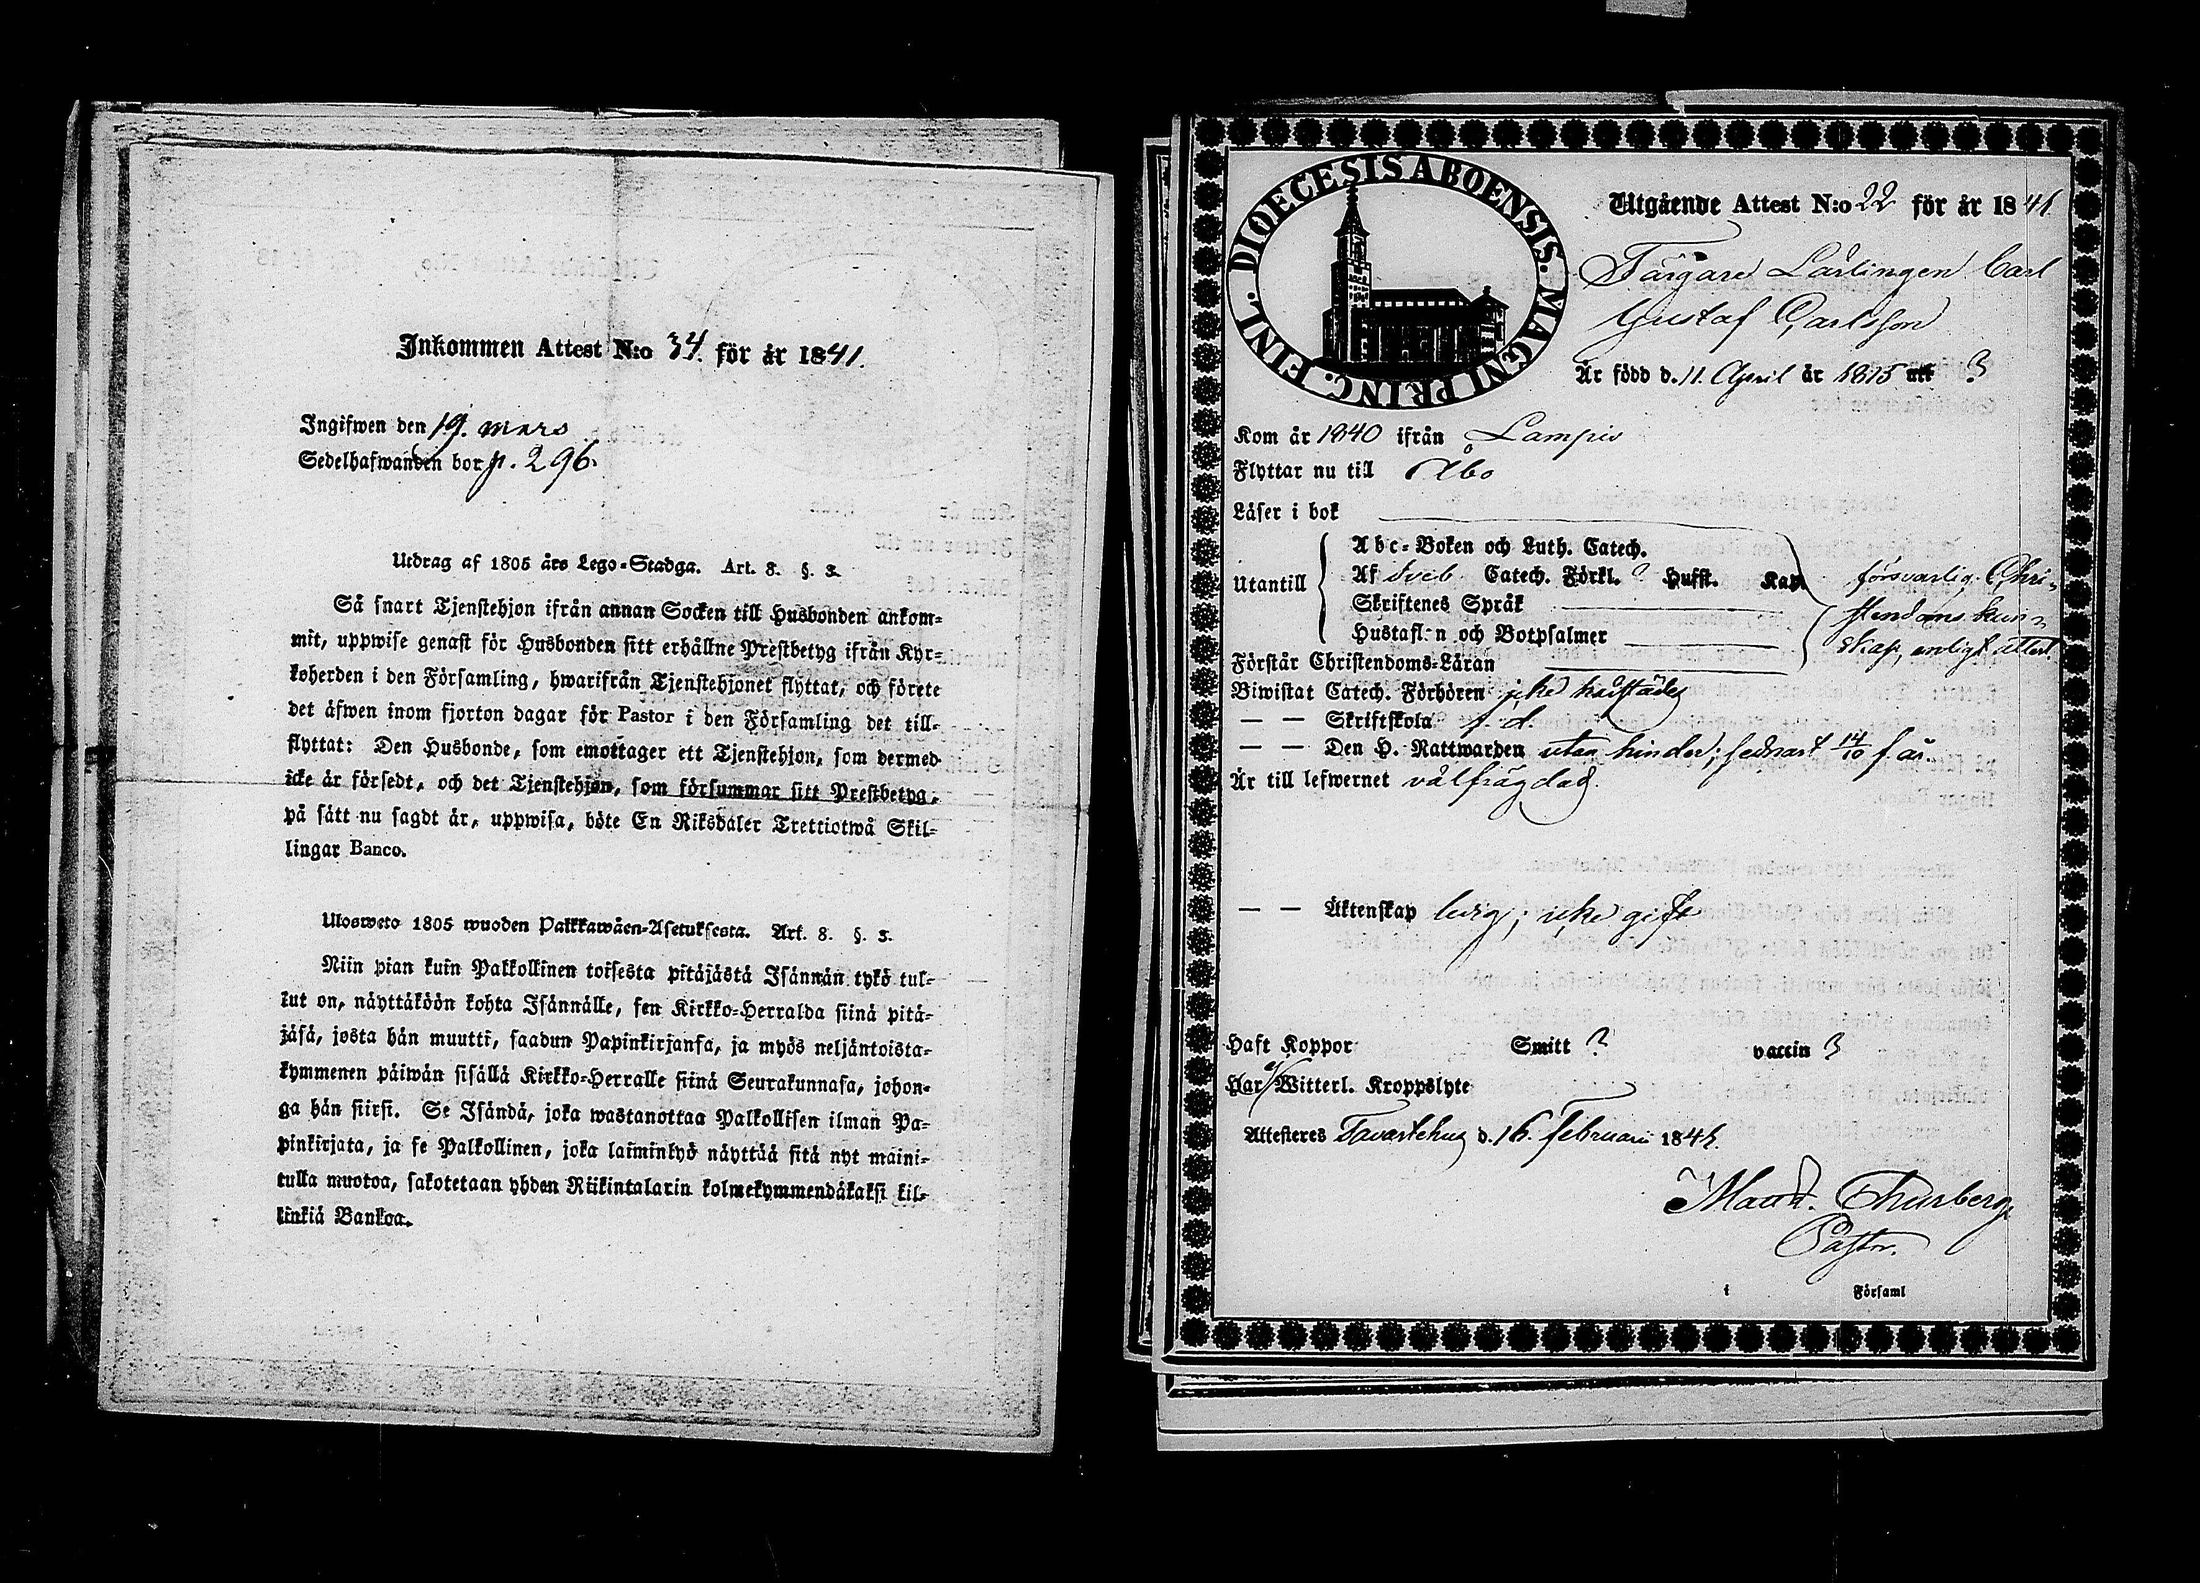 Inkommen Attest N:o 34. för år 1841.
Ingifwen den 19. mars
Sedelhafwanden bor p. 296.
Utdrag af 1805 års Lego-Stadga. Art. 8. §. 3.
Så snart Tjenstehjon ifrån annan Socken till Husbonden ankom-
mit, uppwise genast för Husbonden sitt erhållne Prestbetyg ifrån Kyr-
koherden i den Församling, hwarifrån Tjenstehjonet flyttat, och förete
det äfwen inom fjorton dagar för Pastor i den Församling det till-
flyttat: Den Husbonde, som emottager ett Tjenstehjon, som dermed
icke är försedt, och det Tjenstehjon, som försummar sitt Prestbetyg,
på sätt nu sagdt är, uppwisa, böte En Riksdaler Trettiotwå Skil-
lingar Banco.
Ulosweto 1805 wuoden Palkkawäen-Asetuksesta. Art. 8. §. 3.
Niin pian kuin Palkollinen toisesta pitäjästä Isännän tykö tul-
lut on, näyttäköön kohta Isännälle, sen Kirkko-Herralda siinä pitä-
jäsä, josta hän muutti, saadun Papinkirjansa, ja myös neljäntoista-
kymmenen päiwän sisällä Kirkko-Herralle siinä Seurakunnasa, johon-
ga hän siirsi. Se Isändä, joka wastanottaa Palkollisen ilman Pa-
pinkirjata, ja se Palkollinen, joka laiminlyö näyttää sitä nyt maini-
tulla muotoa, sakotetaan yhden Riikintalarin kolmekymmendäkaksi kil-
linkiä Bankoa.
DIOECESIS ABOENSIS. MAGNI PRINC. FINL.
Utgående Attest N:o 22 för år 1841.
Färgare Lärlingen Carl
Gustaf Carlsson
Är född d. 11. April år 1815 utt ?
Kom år 1840 ifrån Lampis
Flyttar nu till Åbo
Läser i bok
Utantill
Abc-Boken och Luth. Catech.
Af Sveb. Catech. Förkl. ? Hufst. Kap.
Skriftenes Språk
Hustafl:n och Botpsalmer
försvarlig Chri-
stendoms kun-
skap, enligt attest.
Förstår Christendoms-Läran
Biwistat Catech. Förhören icke härstädes
— — Skriftskola f. d.
— — Den H. Nattwarden utan hinder; sednast 14/10 f. år.
Är till lefwernet välfrägdad.
— — Äktenskap ledig; icke gift
Haft Koppor Smitt ? vaccin ?
Har ej Witterl. Kroppslyte
Attesteres Tavastehus d. 16. Februari 1841.
Maur. Thurberg
Pastor.
i Församl